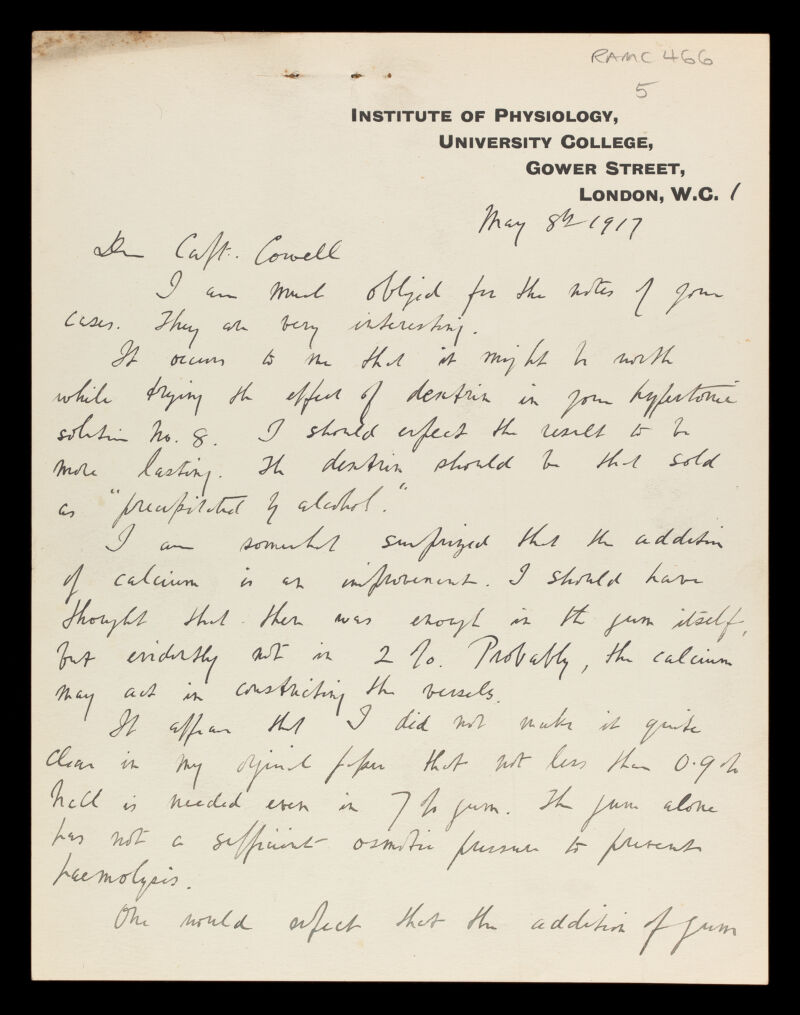 RAMC 466
5
INSTITUTE OF PHYSIOLOGY,
UNIVERSITY COLLEGE,
GOWER STREET,
LONDON, W.C. 1
May 8th 1917
Dear Capt. Cowell
I am much obliged for the notes of your
cases. They are very interesting.
It occurs to me that it might be worth
while trying the effect of dextrin in your hypertonic
solution No. 8. I should expect the result to be
more lasting. The dextrin should be that sold
as "precipitated by alcohol."
I am somewhat surprized that the addition
of calcium is an improvement. I should have
thought that there was enough in the gum itself,
but evidently not in 2 %. Probably, the calcium
may act in constricting the vessels.
It appears that I did not make it quite
clear in my original paper that not less than 0.9 %
NaCl is needed even in 7 % gum. The gum alone
has not a sufficient osmotic pressure to prevent
haemolysis.
One would expect that the addition of gum